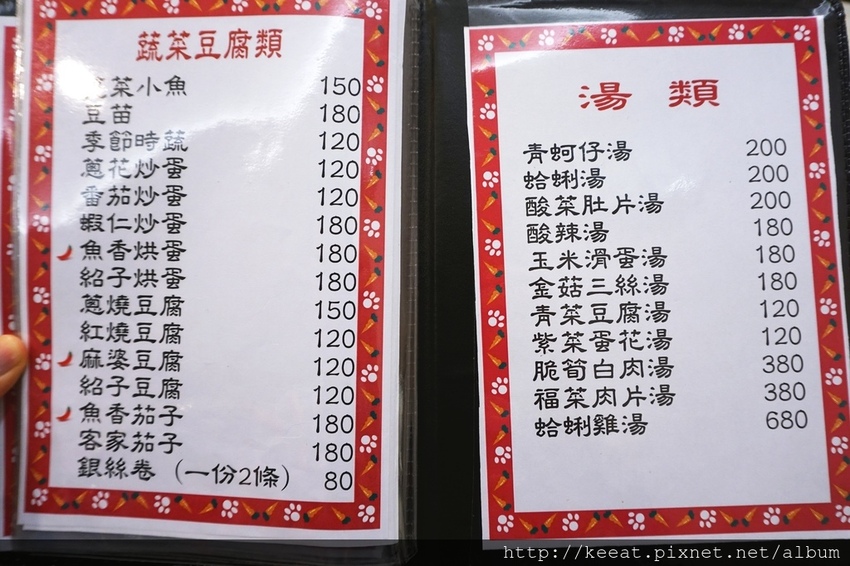 蔬菜豆腐類
菜小魚 150
豆苗 180
季節時蔬 120
蔥花炒蛋 120
番茄炒蛋 120
蝦仁炒蛋 180
魚香烘蛋 180
紹子烘蛋 180
蔥燒豆腐 150
紅燒豆腐 120
麻婆豆腐 120
紹子豆腐 120
魚香茄子 180
客家茄子 180
銀絲卷（一份2條） 80
湯 類
青蚵仔湯 200
蛤蜊湯 200
酸菜肚片湯 200
酸辣湯 180
玉米滑蛋湯 180
金菇三絲湯 180
青菜豆腐湯 120
紫菜蛋花湯 120
脆筍白肉湯 380
福菜肉片湯 380
蛤蜊雞湯 680
http://keeat.pixnet.net/album